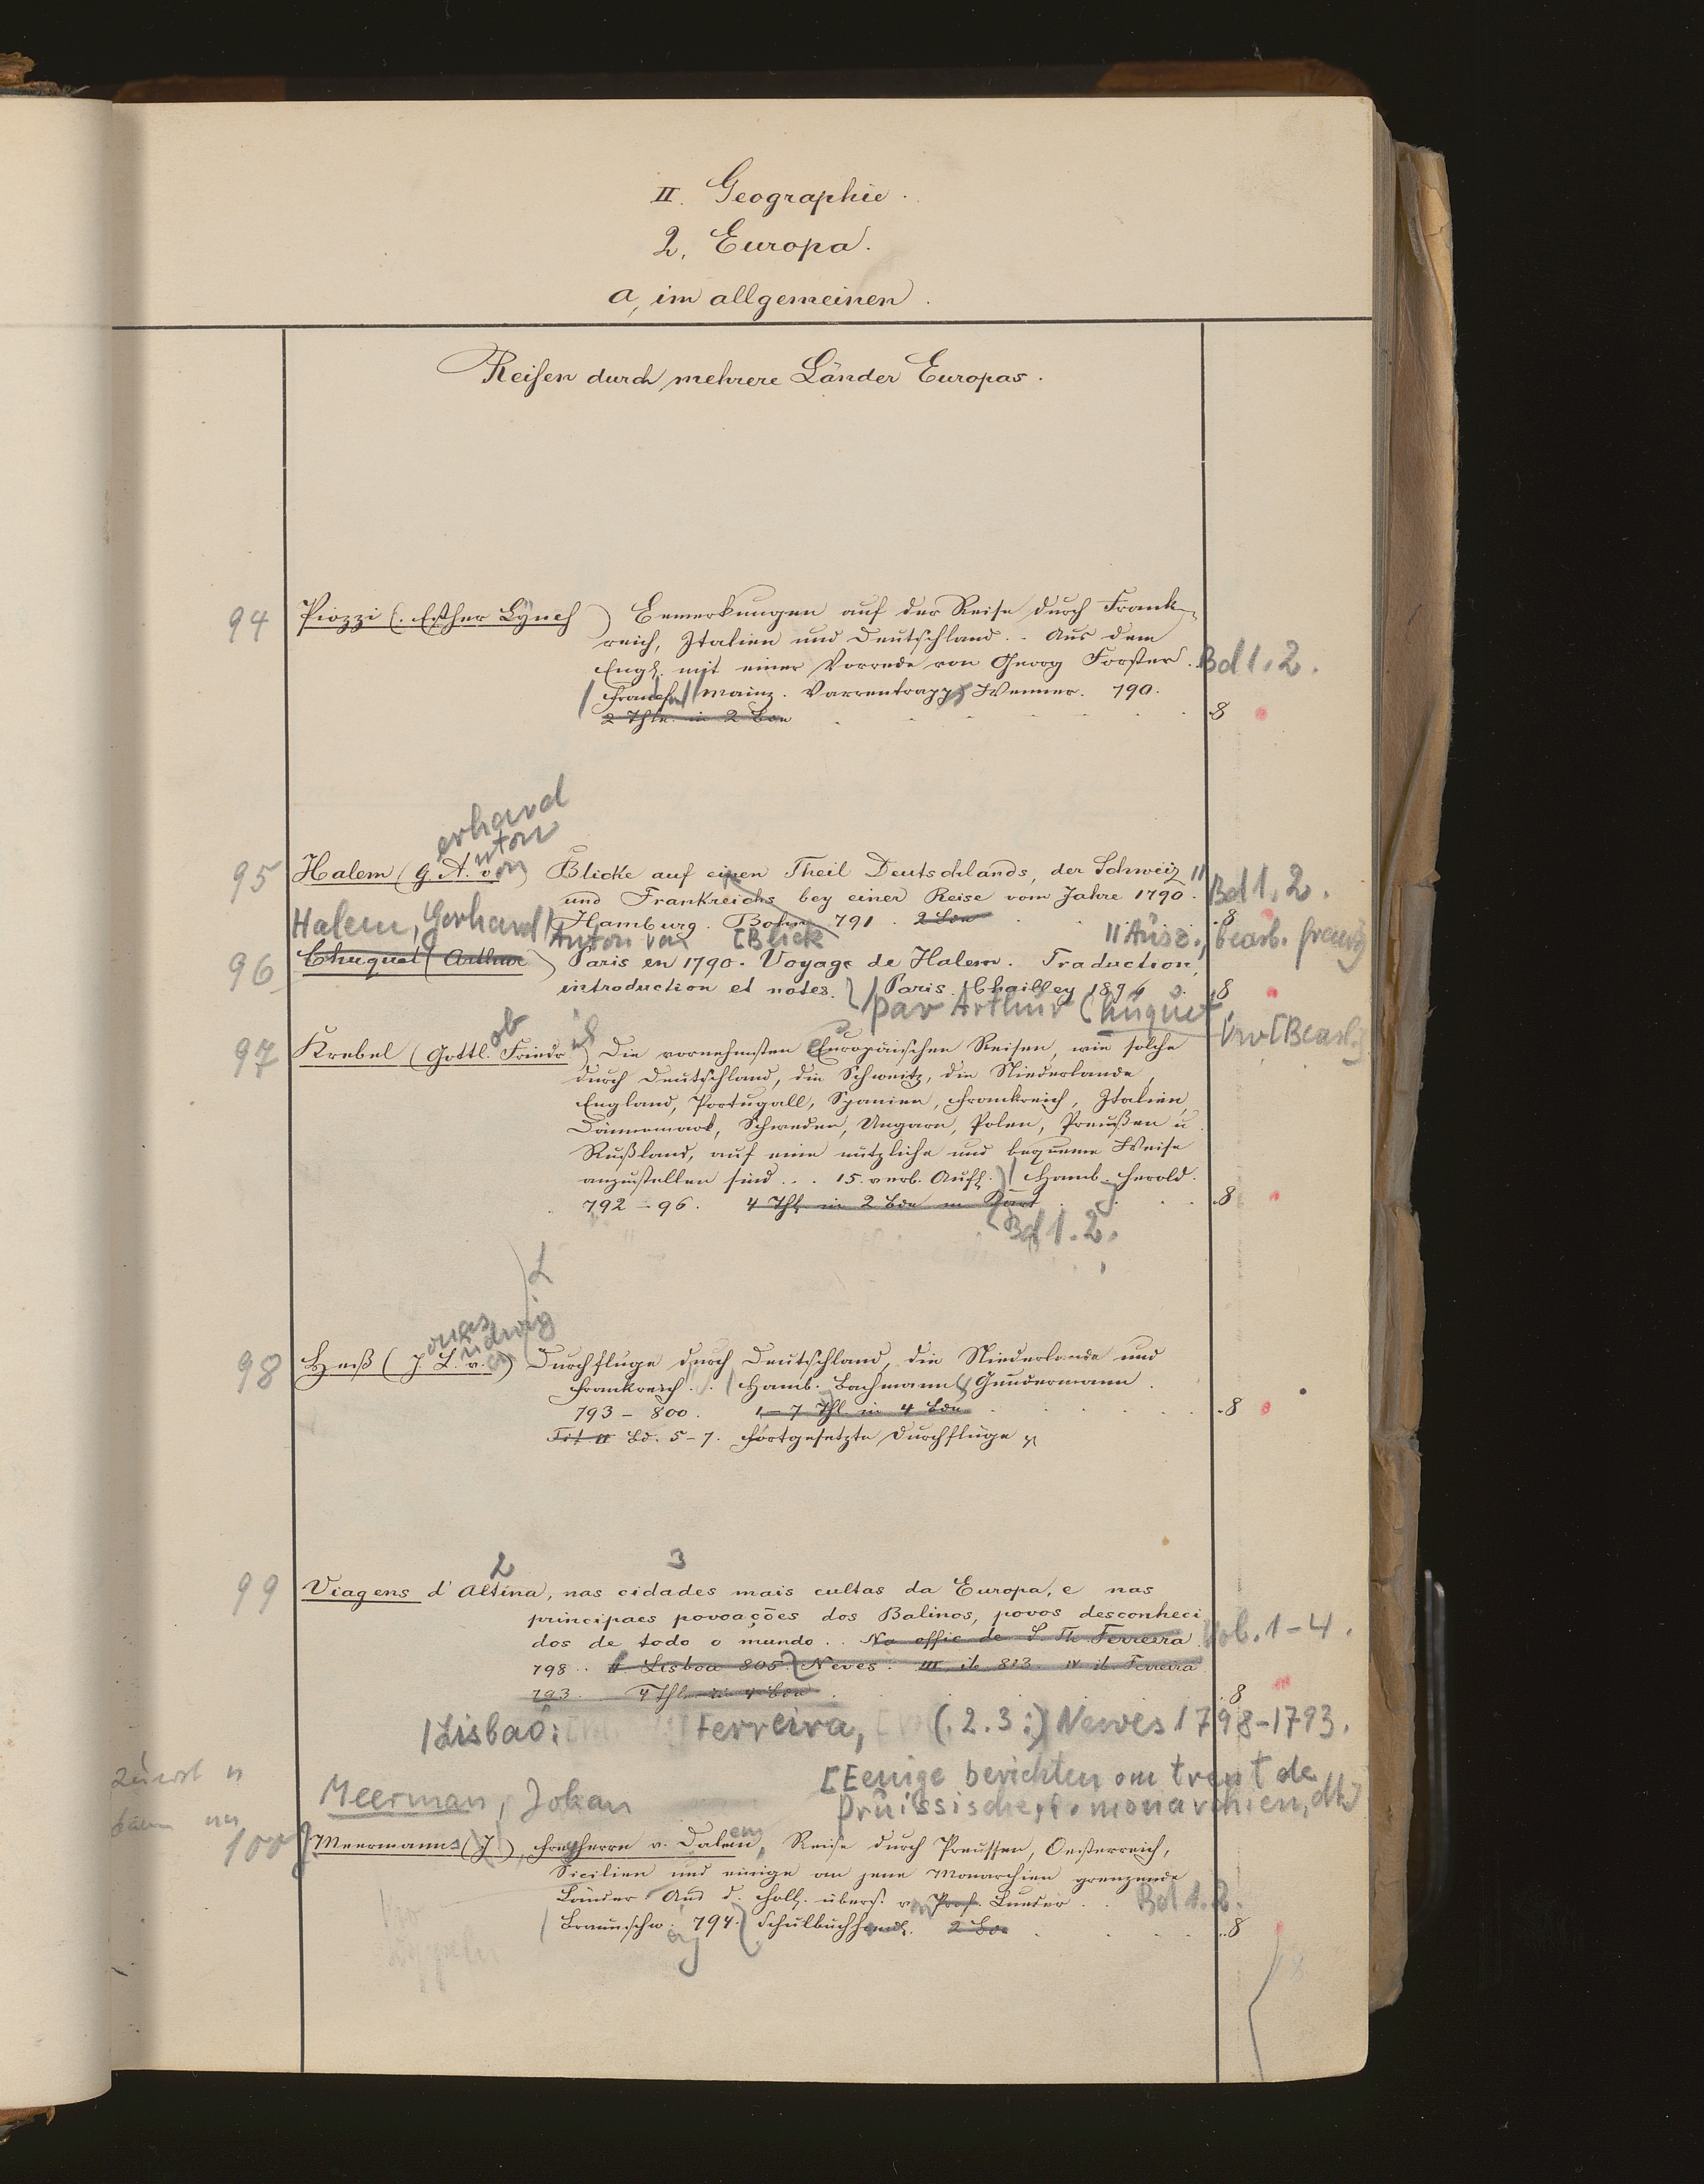 II. Geographie.
2. Europa.
a, im allgemeinen.
Reisen durch mehrere Länder Europas.
94 Piozzi (. Esther Lynch) Bemerkungen auf der Reise durch Frank-
reich, Italien und Deutschland.. Aus dem
Engl. mit einer Vorrede von Georg Forster. Bd 1.2.
/ Mainz. Varrentrapp Wenner. 790.
2 Thle. in 2 Bdn 8
erhard
nton
on
95 Halem (G. A. v.) Blicke auf einen Theil Deutschlands, der Schweiz
und Frankreichs bey einer Reise vom Jahre 1790. Bd 1.2.
Hamburg. Bohn. 791. 2 Bde 8
Halem, Gerhard Anton von [Blick // Ausz., bearb. franz]
96 Chuquet (Arthur) Paris en 1790. Voyage de Halem. Traduction,
introduction et notes. / Paris. Chailley 1896. 8
par Arthur Chuquet
Vw [Bearb.]
ob ich
97 Krebel (Gottl. Friedr.) Die vornehmsten Europäischen Reisen, wie solche
durch Deutschland, die Schweitz, die Niederlande,
England, Portugall, Spanien, Frankreich, Italien,
Dännemark, Schweden, Ungarn, Polen, Preußen u.
Rußland, auf eine nützliche und bequeme Weise
anzustellen sind... 15. verb. Aufl. / Hamb. Herold.
792-96. 4 Thl. in 2 Bdn m Kart 8
Bd 1.2.
L
onas
udwig
98 Heß (J. L. v.) Durchfluge durch Deutschland, die Niederlande und
Frankreich.. / Hamb. Bachmann & Gundermann.
793-800. 1-7 Thl. in 4 Bdn 8
Tit II Bd. 5-7. Fortgesetzte Durchflüge
2 3
99 Viagens d'Altina, nas cidades mais cultas da Europa, e nas
principaes povoações dos Balinos, povos desconheci
dos de todo o mundo.. Na offic de S. Th. Ferreira Vol. 1-4.
798.. II Lisboa 805. Neves. III ib 813. IV ib. Ferreira
793. 4 Thle in 4 Bdn 8
/Lisbao: Ferreira, (.2.3:) Neves 1798-1793.
zuerst
[Eenige berichten om trent de
Meerman, Johan
Pruissische, monarchien, dt.]
100 Meermanns (J), Freyherrn v. Dalem, Reise durch Preussen, Oesterreich,
Sicilien und einige an jene Monarchien grenzende
Länder. Aus d. Holl. übers. v. Prof. Lueder.. Bd 1.2.
/ Braunschw. 794. Schulbuchhandl. 2 Bde 8